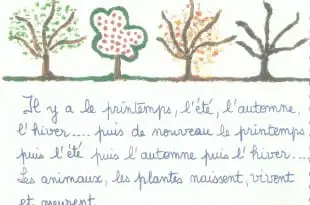 Il y a le printemps, l'été, l'automne,
l'hiver.... puis de nouveau le printemps
puis l'été puis l'automne puis l'hiver...
Les animaux, les plantes naissent, vivent
et meurent.